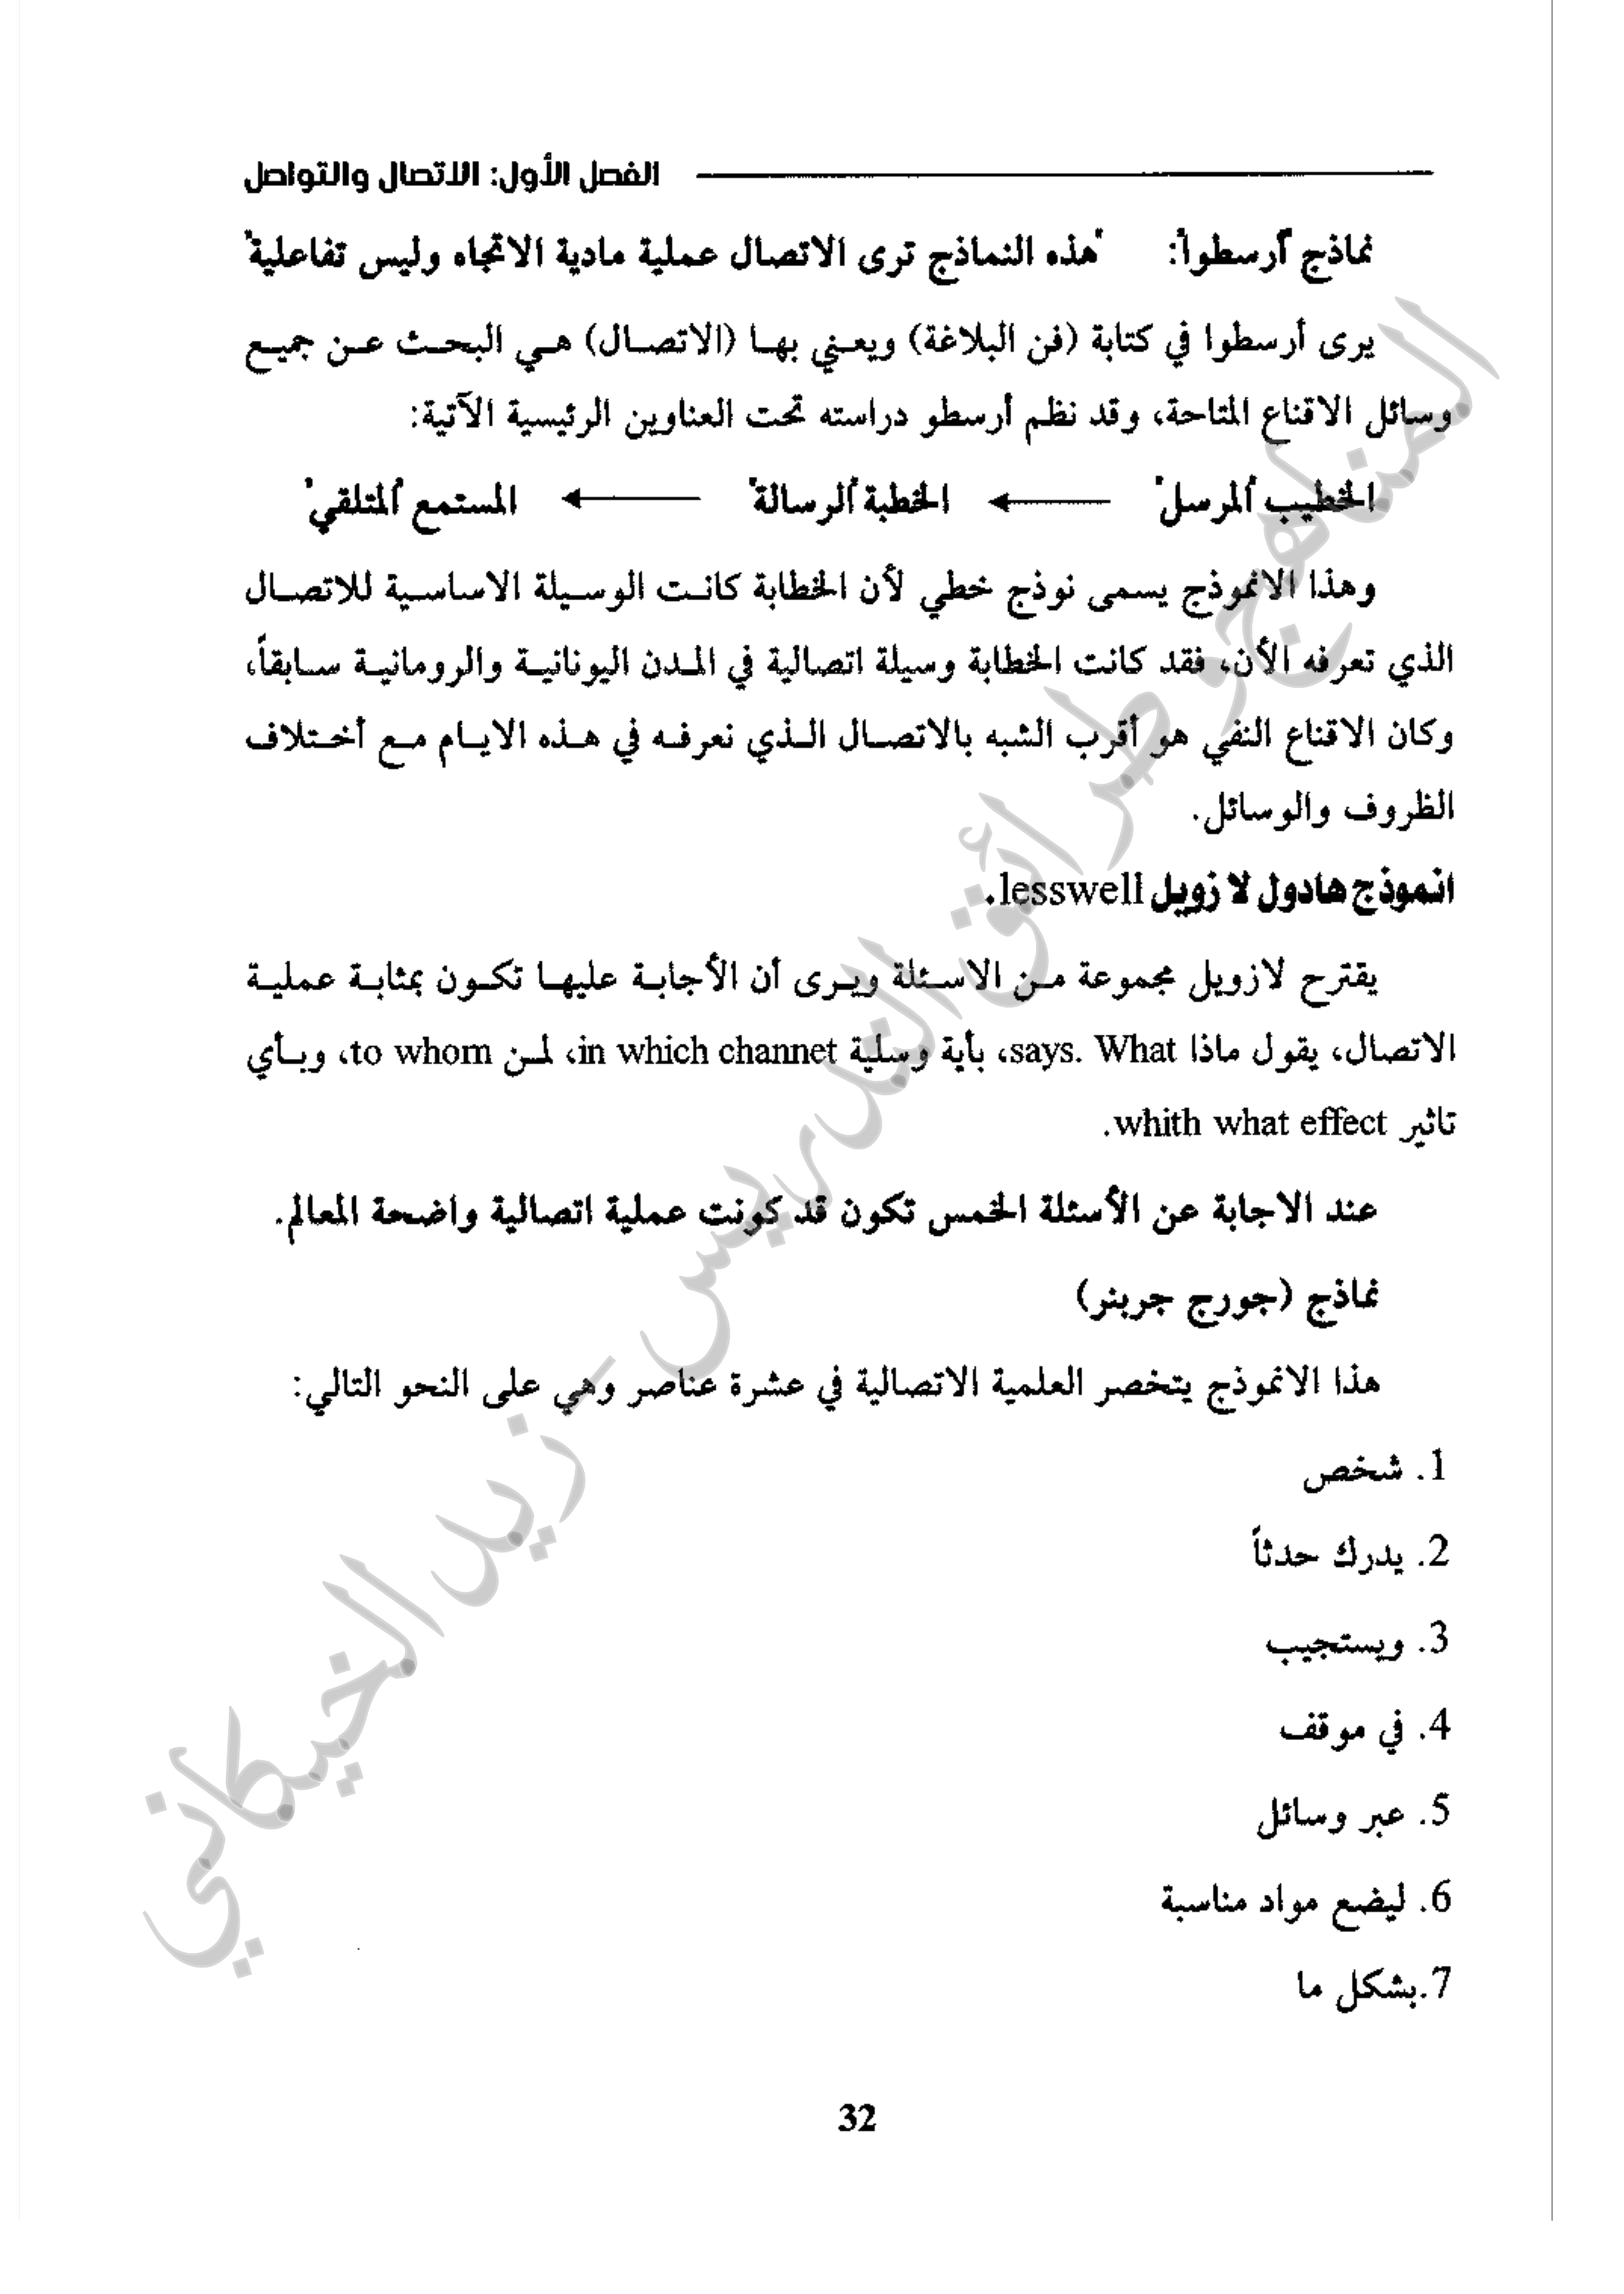 الفصل الأول: الاتصال والتواصل
نماذج "أرسطوا": "هذه النماذج ترى الاتصال عملية مادية الاتجاه وليس تفاعلية"
يرى أرسطوا في كتابة (فن البلاغة) ويعني بها (الاتصال) هي البحث عن جميع
وسائل الاقناع المتاحة، وقد نظم أرسطو دراسته تحت العناوين الرئيسية الآتية:
الخطيب "المرسل" ← الخطبة "الرسالة" ← المستمع "المتلقي"
وهذا الانموذج يسمى نوذج خطي لأن الخطابة كانت الوسيلة الاساسية للاتصال
الذي تعرفه الأن، فقد كانت الخطابة وسيلة اتصالية في المدن اليونانية والرومانية سابقاً،
وكان الاقناع النفي هو أقرب الشبه بالاتصال الذي نعرفه في هذه الايام مع أختلاف
الظروف والوسائل.
انموذج هادول لا زويل lesswell.
يقترح لازويل مجموعة من الاسئلة ويرى أن الأجابة عليها تكون بمثابة عملية
الاتصال، يقول ماذا says. What، بأية وسلية in which channet، لمن to whom، وبأي
تاثير whith what effect.
عند الاجابة عن الأسئلة الخمس تكون قد كونت عملية اتصالية واضحة المعالم.
نماذج (جورج جربنر)
هذا الانموذج يتخصر العلمية الاتصالية في عشرة عناصر وهي على النحو التالي:
1. شخص
2. يدرك حدثاً
3. ويستجيب
4. في موقف
5. عبر وسائل
6. ليضع مواد مناسبة
7.بشكل ما
32
المناهج وطرائق التدريس - زيد الخيكاني